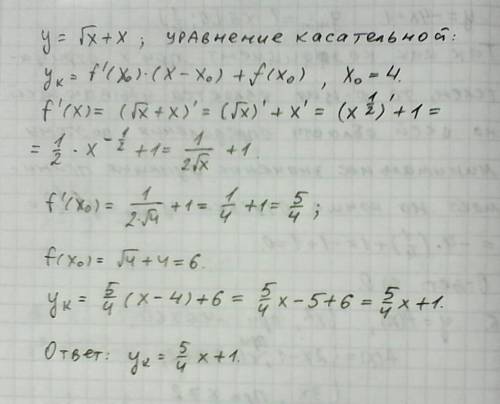 y = √x + x ; уравнение касательной:
yₖ = f'(x₀)·(x − x₀) + f(x₀) , x₀ = 4.
f'(x) = (√x + x)' = (√x)' + x' = (x^{1/2})' + 1 =
= 1/2 · x^{−1/2} + 1 = 1/(2√x) + 1.
f'(x₀) = 1/(2·√4) + 1 = 1/4 + 1 = 5/4 ;
f(x₀) = √4 + 4 = 6.
yₖ = 5/4 (x − 4) + 6 = 5/4 x − 5 + 6 = 5/4 x + 1.
Ответ: yₖ = 5/4 x + 1.